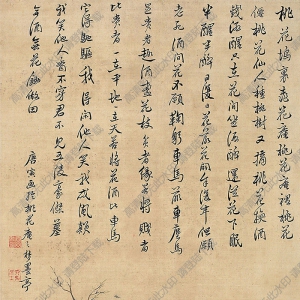 桃花塢裏桃花庵桃花庵
僊桃花仙人種桃樹又摘桃花換酒
錢酒醒只在花間坐酒醉還從花下眠
半醒半醉日復日花開花落年復年但願
老死酒間花不願鞠躬車馬前車塵馬
足貴者趣酒盞花枝貧者緣若將富
比貧者一在平地一在天若將花酒比車馬
它得驅馳我得閑他人笑我忒風顛
我笑他人看不穿君不見五陵豪傑墓
無酒無花鋤做田
唐寅画於桃花庵之夢墨亭